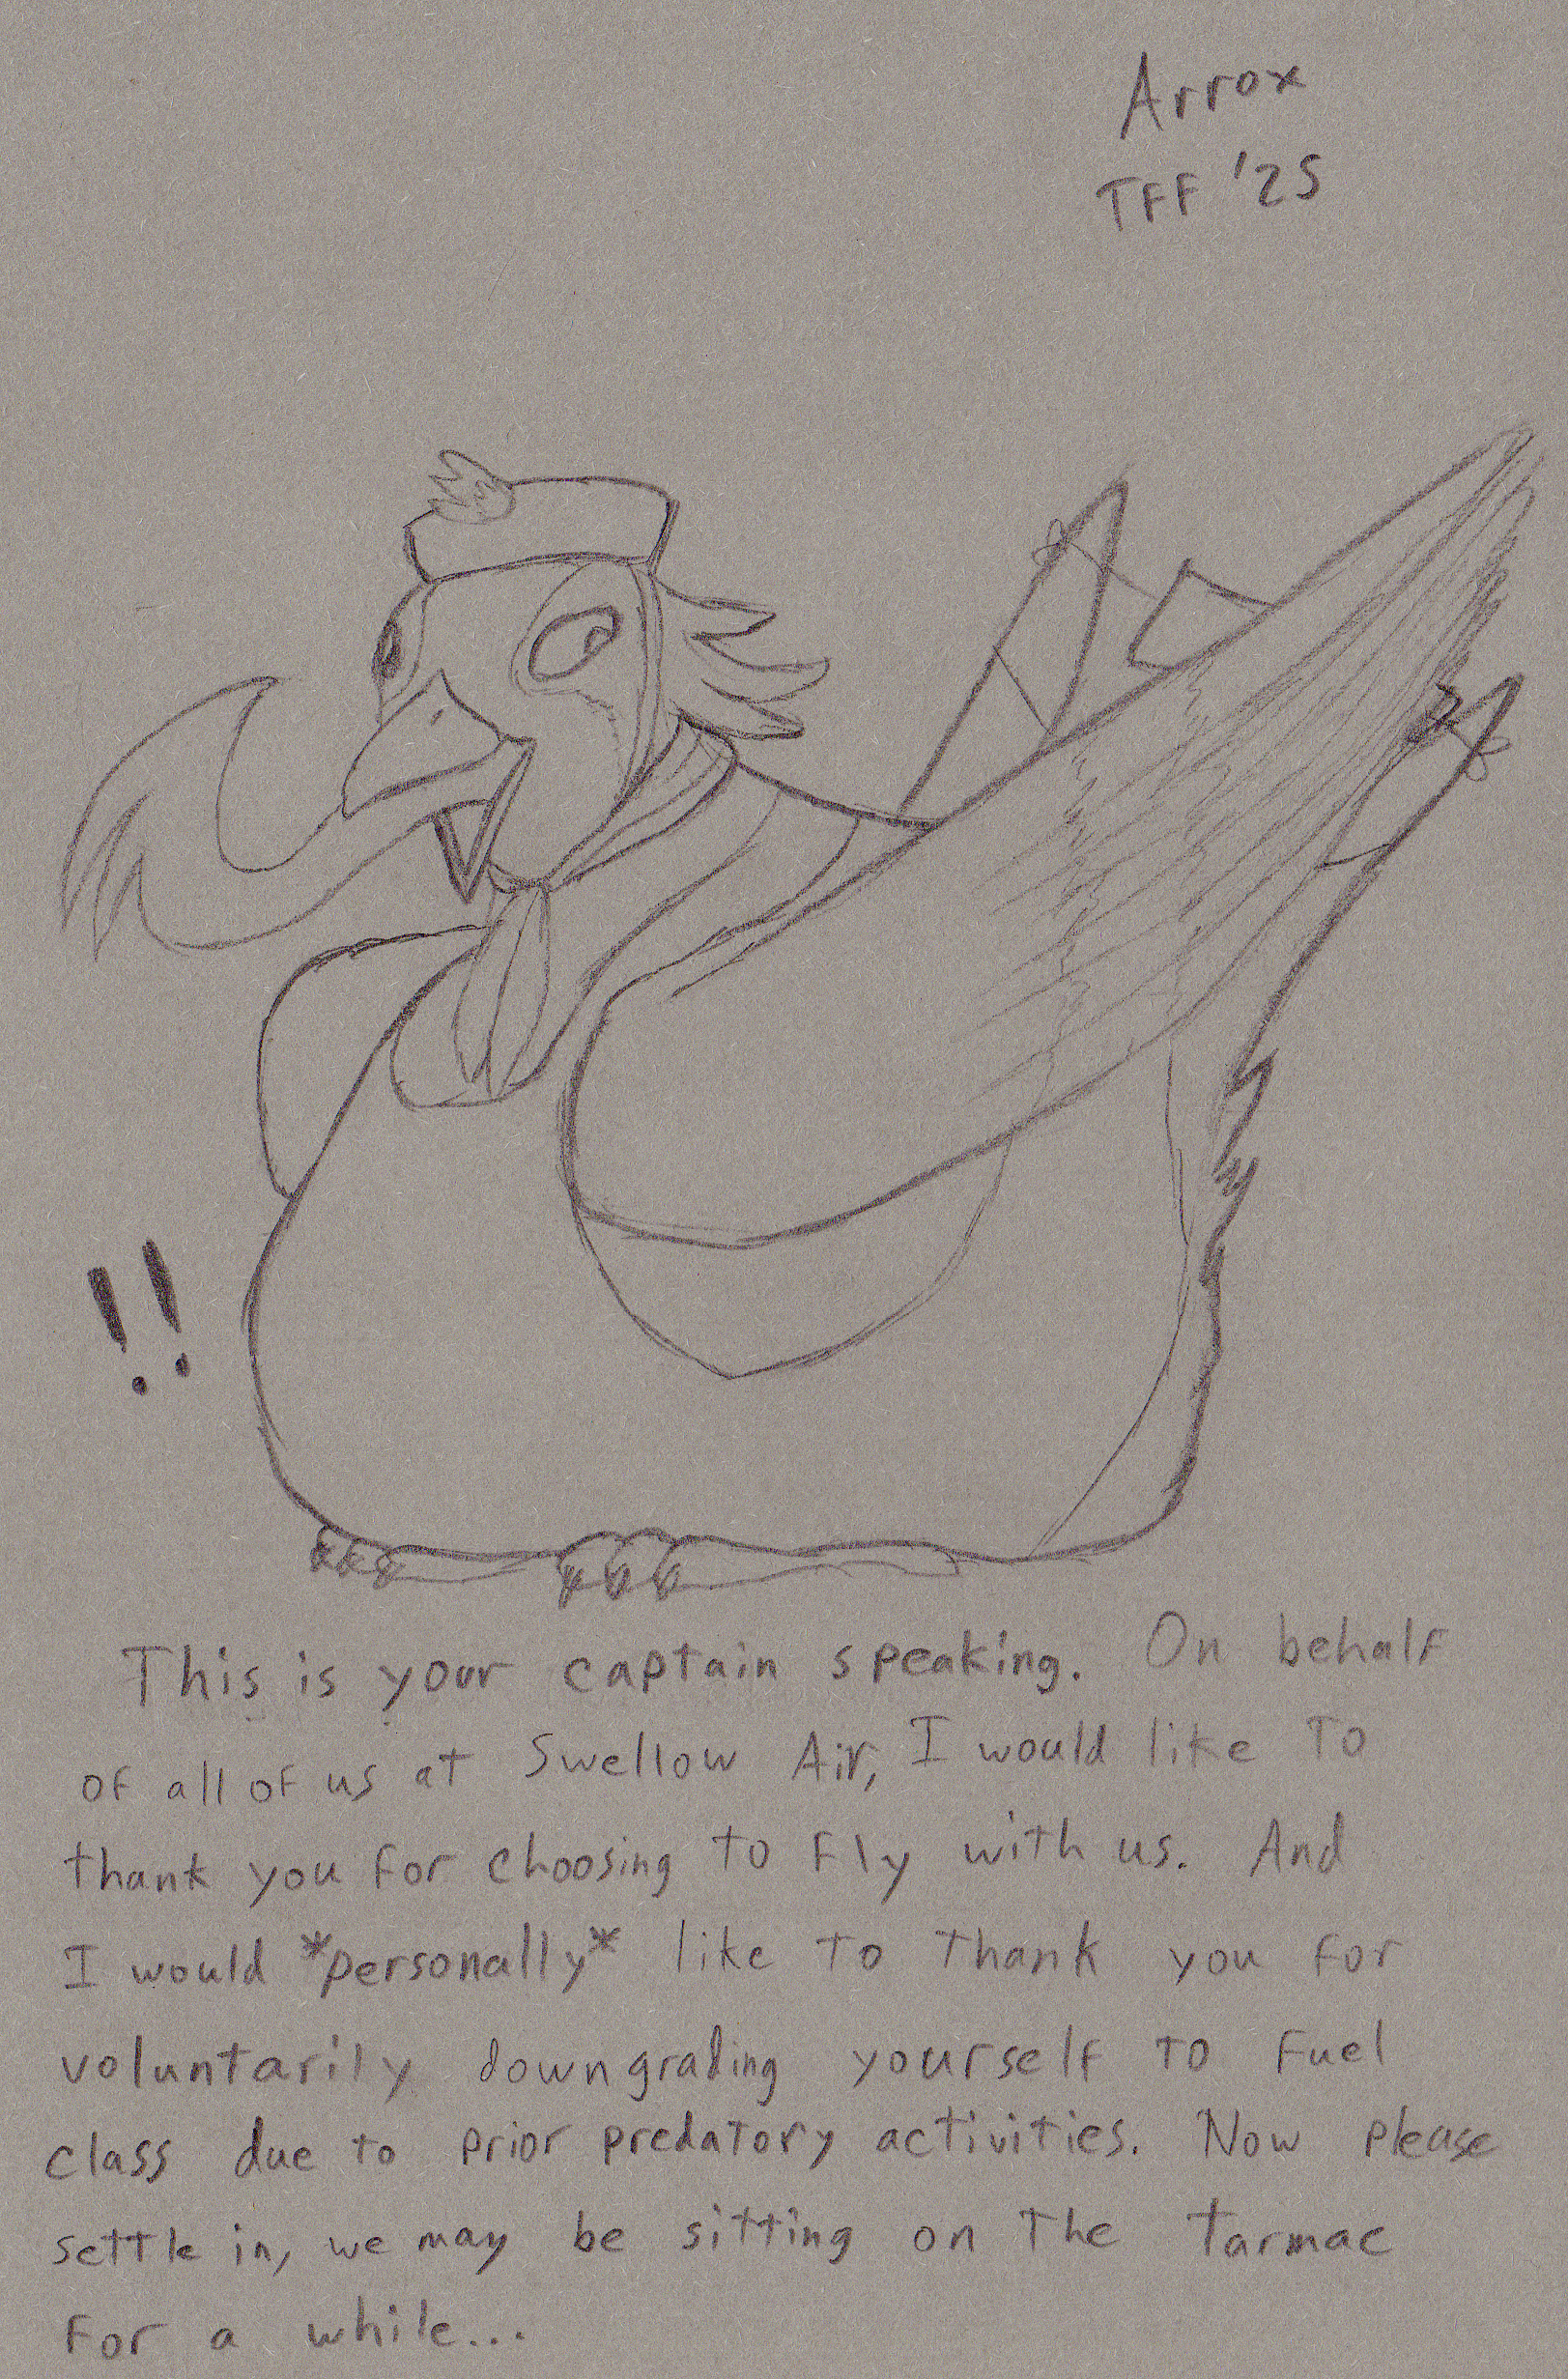 Arrox
TFF '25
!!
This is your captain speaking. On behalf
of all of us at Swellow Air, I would like to
thank you for choosing to fly with us. And
I would *personally* like to thank you for
voluntarily downgrading yourself to Fuel
class due to prior predatory activities. Now please
settle in, we may be sitting on the tarmac
for a while...